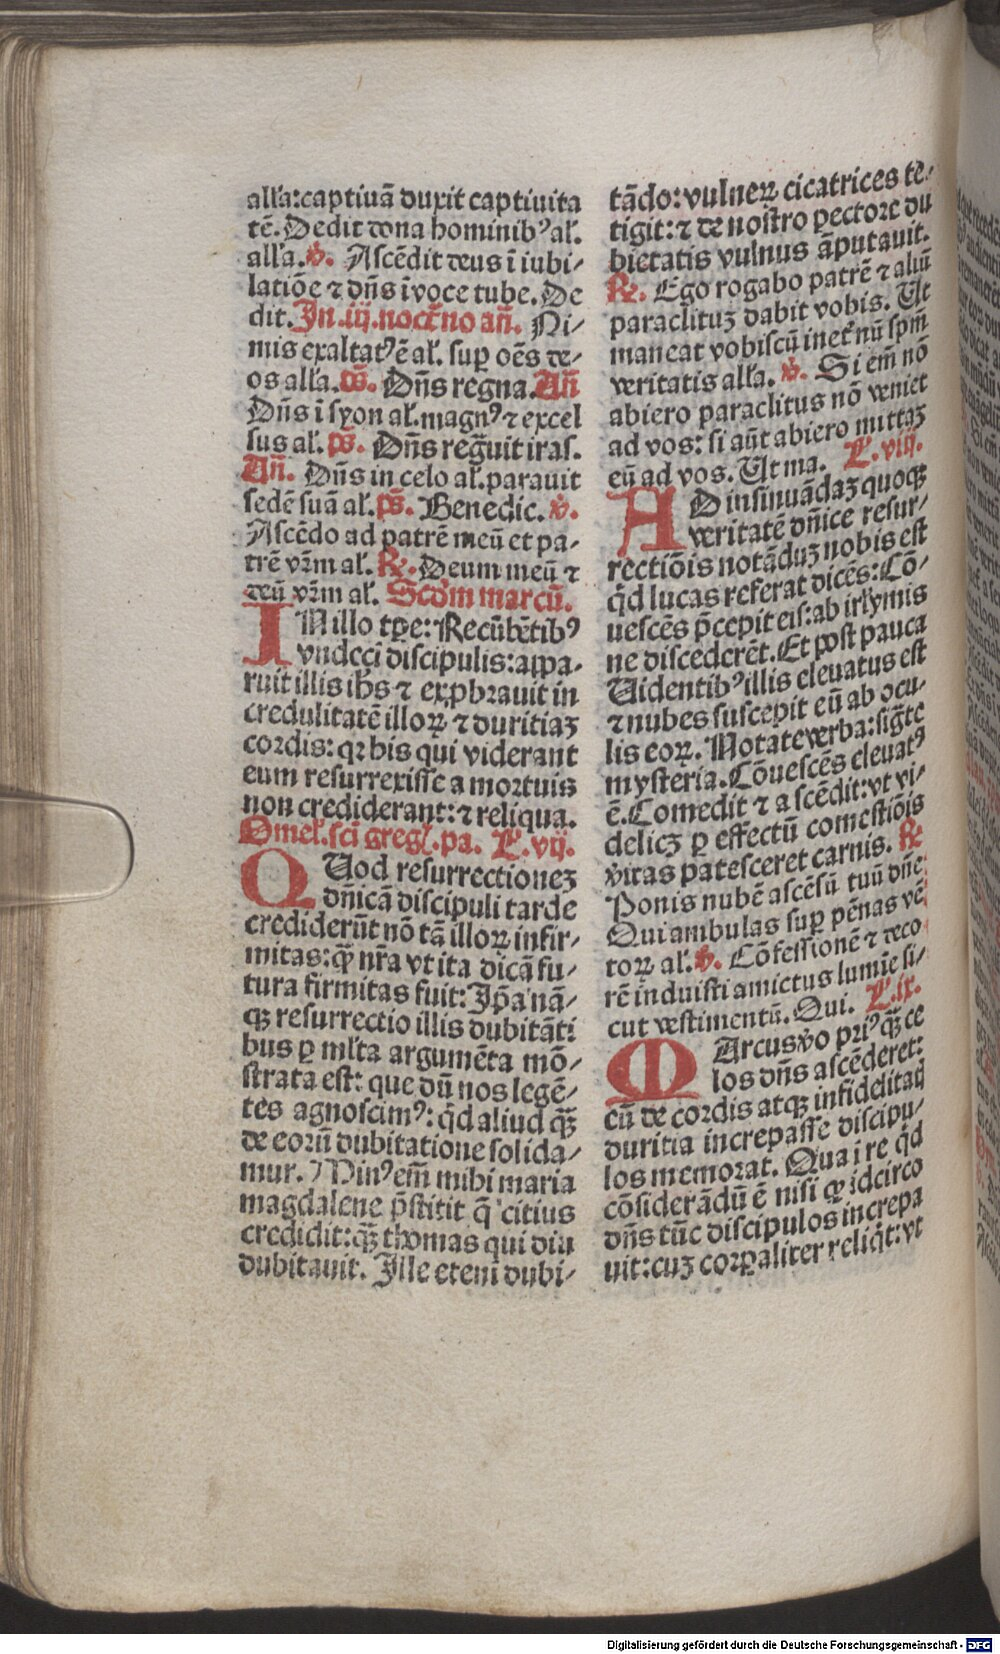 alľa: captiuā duxit captiuita
tē. Dedit dona hominibꝰ al̄.
alľa. ℣. Ascēdit deus ī iubi⸗
latiōe ⁊ dn̄s ī voce tube. De
dit. In .iij. noct̄no an̄. Ni⸗
mis exaltatꝰ ē al̄. sup oēs de⸗
os alľa. p̄s. Dn̄s regna. An̄
Dn̄s ī syon al̄. magnꝰ ⁊ excel
sus al̄. p̄s. Dn̄s reg̃uit iras.
An̄. Dn̄s in celo al̄. parauit
sedē suā al̄. p̄s. Benedic. ℣.
Ascēdo ad patrē meū et pa⸗
trē vr̄m al̄. ℟. Deum meū ⁊
deū vr̄m al̄. Scd̄m marcū.
IN illo tꝑe: Recūbētibꝰ
vndeci discipulis: appa⸗
ruit illis ih̄s ⁊ exꝓbrauit in
credulitatē illoꝝ ⁊ duritiaꝫ
cordis: qꝛ his qui viderant
eum resurrexisse a mortuis
non crediderant: ⁊ reliqua.
Omel̄. sci gregl̄. pa. L. vij.
QUod resurrectioneꝫ
dn̄icā discipuli tarde
crediderūt nō tā illoꝝ infir⸗
mitas: ꝙ̄ nr̄a vt ita dicā fu⸗
tura firmitas fuit: Ip̄a nā⸗
qꝫ resurrectio illis dubitāti
bus ꝑ ml̄ta argumēta mō⸗
strata est: que dū nos legē⸗
tes agnoscimꝰ: qd̄ aliud qꝫ̄
de eorū dubitatione solida⸗
mur. Minꝰ em̄ mihi maria
magdalene p̄stitit q̄ citius
credidit: qꝫ̄ thomas qui diu
dubitauit. Ille etenī dubi⸗
tādo: vulneꝝ cicatrices te⸗
tigit: ⁊ de nostro pectore du
bietatis vulnus āputauit.
℟. Ego rogabo patrē ⁊ aliū
paraclituꝫ dabit vobis. Ut
maneat vobiscū inet̄nū spm̄
veritatis alľa. ℣. Si em̄ nō
abiero paraclitus nō veniet
ad vos: si aūt abiero mittaꝫ
eū ad vos. Ut ma. L. viij.
AD insinuādaꝫ quoqꝫ
veritatē dn̄ice resur⸗
rectiōis notāduꝫ nobis est
qd̄ lucas referat dicēs: Cō⸗
uescēs p̄cepit eis: ab irl̄ymis
ne discederēt. Et post pauca
Uidentibꝰ illis eleuatus est
⁊ nubes suscepit eū ab ocu⸗
lis eoꝝ. Notate verba: sig̃te
mysteria. Cōuescēs eleuatꝰ
ē. Comedit ⁊ ascēdit: vt vi⸗
delicꝫ ꝑ effectū comestiōis
vitas patesceret carnis. ℟
Ponis nubē ascēsū tuū dn̄e
Qui ambulas sup pēnas vē
toꝝ al̄. ℣. Cōfessionē ⁊ deco
rē induisti amictus lumīe si⸗
cut vestimentū. Qui. L. ix.
MArcus v̄o priꝰ qꝫ̄ ce
los dn̄s ascēderet:
eū de cordis atqꝫ infidelitatꝭ
duritia increpasse discipu⸗
los memorat. Qua i re qd̄
cōsiderādū ē nisi ꝙ idcirco
dn̄s tūc discipulos increpa
uit: cuꝫ corꝑaliter reliqt̄: vt
Digitalisierung gefördert durch die Deutsche Forschungsgemeinschaft - DFG